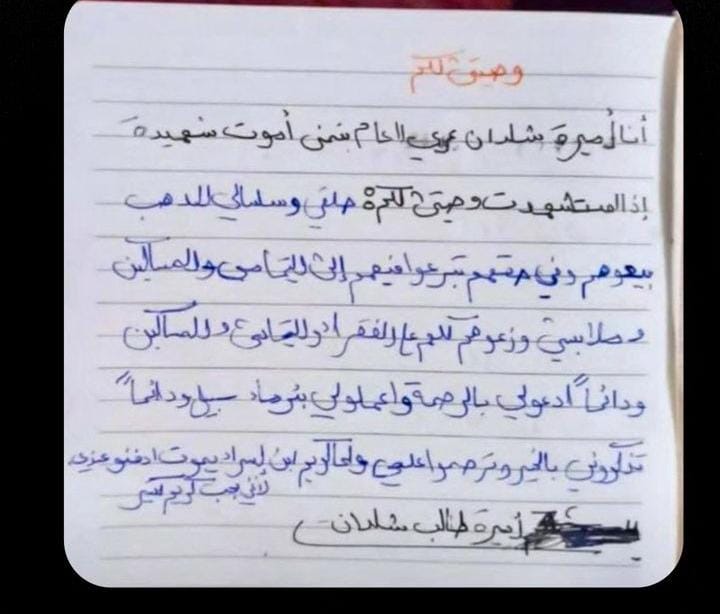 وصيتي لكم
أنا أميرة شلدان عمري العام بتمنى أموت شهيدة
إذا استشهدت وصيتي لكم حلقي وسلسالي الذهب
بيعوهم وفي حقهم تبرعوا فيهم إلى اليتامى والمساكين
وملابسي وزعوهم كلهم على الفقراء واليتامى والمساكين
ودائماً ادعولي بالرحمة واعملولي بئر ماء سبيل ودائماً
تذكروني بالخير وترحموا علي ولما كريم ابن إسراء يموت ادفنوه عندي
لأني بحب كريم كتير
أميرة طالب شلدان